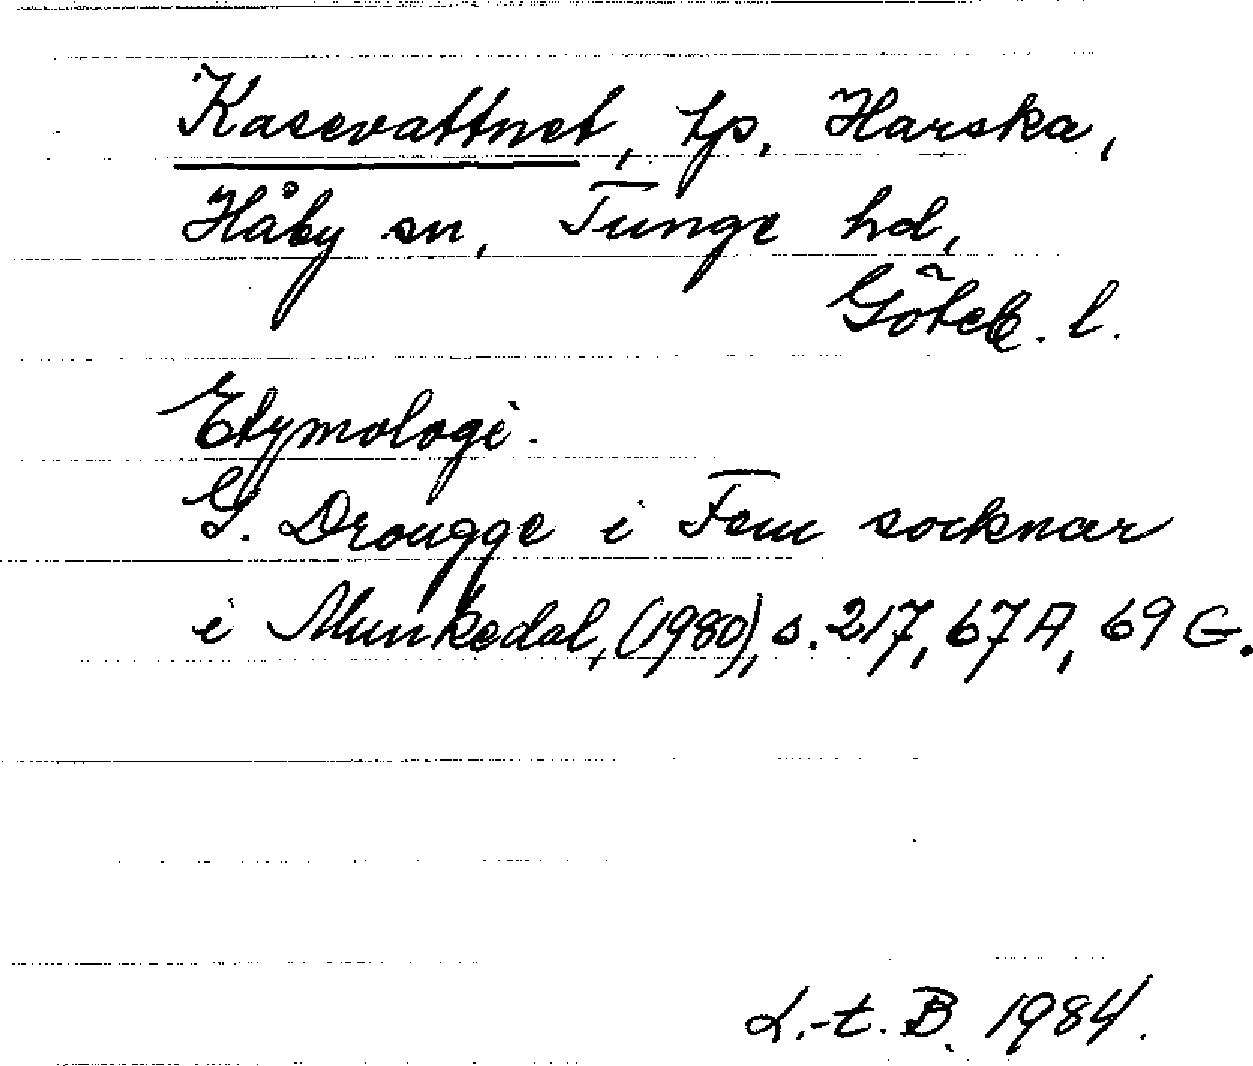 Kasevattnet, tp, Harska,
Håby sn, Tunge hd,
Göteb. l.
Etymologi.
G. Drougge i Fem socknar
i Munkedal, (1980), s. 217, 67A, 69G.
L.-t. B. 1984.